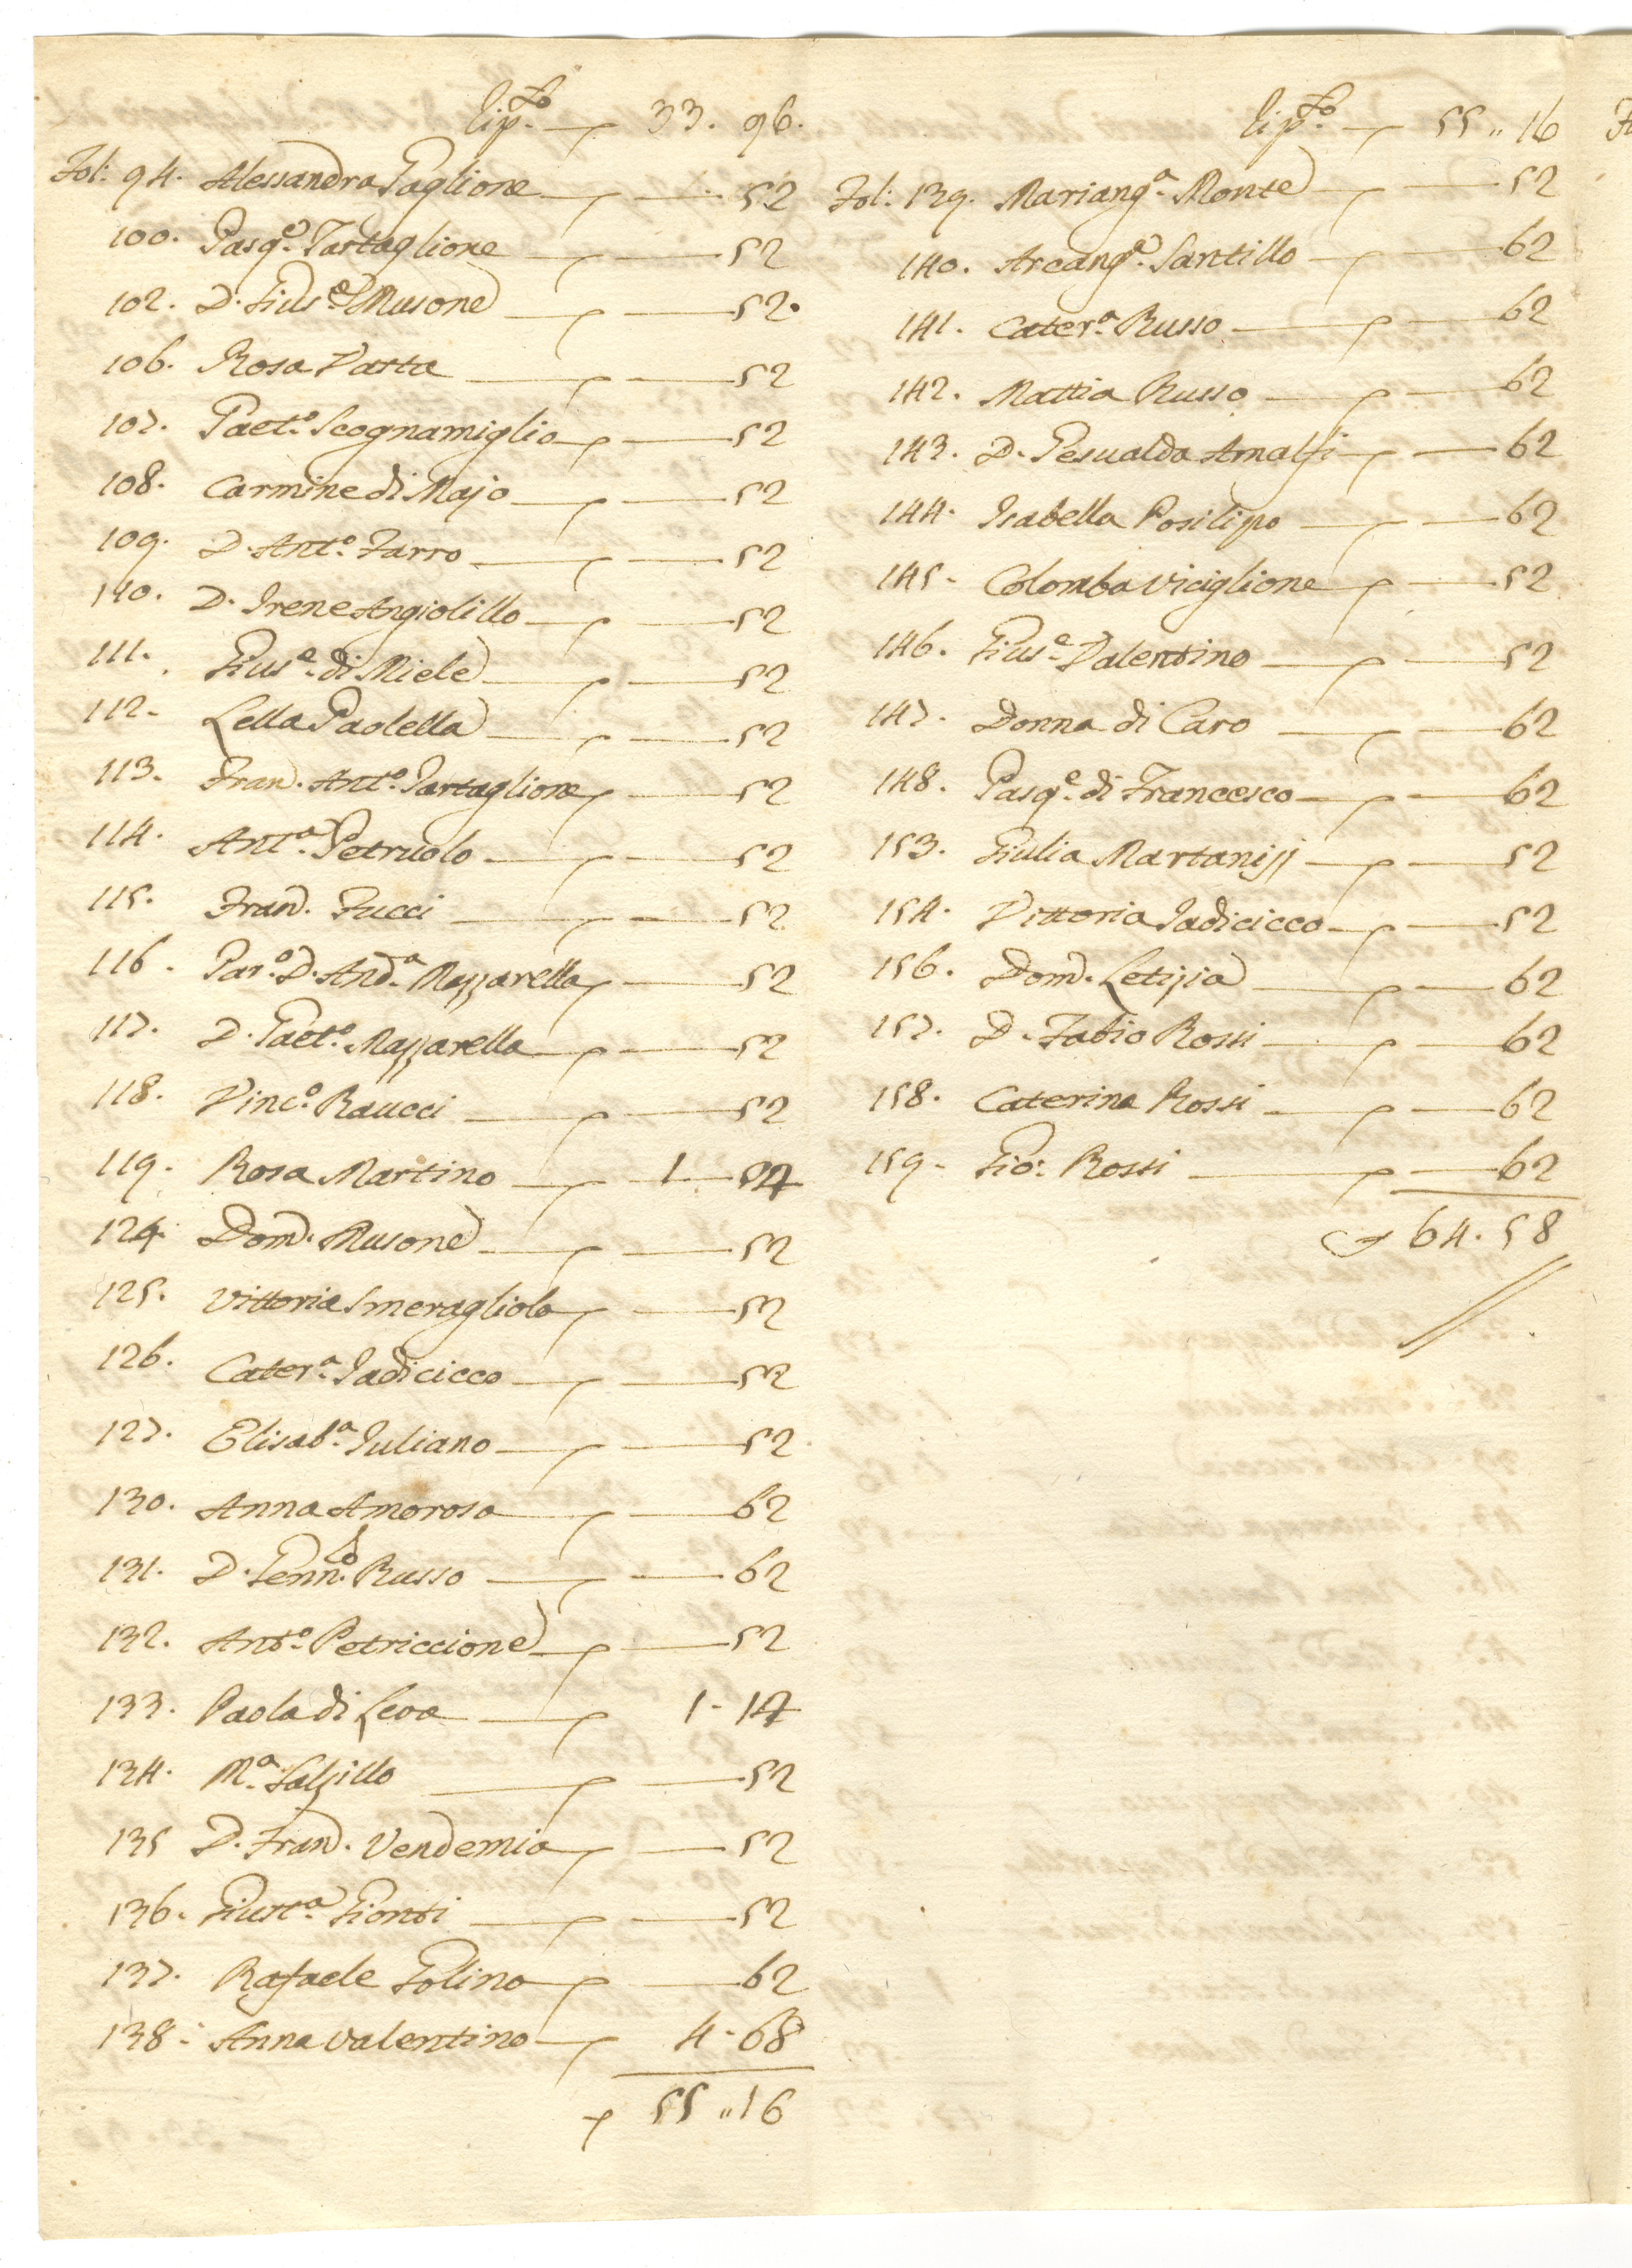 Rip.to — 33. 96.
Fol: 94. Alessandra Paglione — 52
100. Pasq.e Tartaglione — 52
102. D. Gius.e Musone — 52.
106. Rosa Vatta — 52
107. Gaet.o Scognamiglio — 52
108. Carmine di Majo — 52
109. D. Ant.o Farro — 52
110. D. Irene Angiolillo — 52
111. Gius.e di Miele — 52
112. Lella Paolella — 52
113. Fran. Ant.o Tartaglione — 52
114. Ant.a Petruolo — 52
115. Fran. Fucci — 52
116. Par.o D. And.a Mazzarella — 52
117. D. Gaet.o Mazzarella — 52
118. Vinc.o Raucci — 52
119. Rosa Martino — 1 — 04
124. Dom. Musone — 52
125. Vittoria Smeragliolo — 52
126. Cater.a Iadicicco — 52
127. Elisab.a Iuliano — 52
130. Anna Amoroso — 62
131. D. Genn.o Russo — 62
132. Ant.o Petriccione — 52
133. Paola di Leva — 1 - 14
134. M.a Salzillo — 52
135 D. Fran. Vendemia — 52
136. Giust.a Gionti — 52
137. Rafaele Golino — 62
138. Anna Valentino — 4 - 68
55 " 16
Rip.to — 55 " 16
Fol: 139. Mariang.a Monte — 52
140. Arcang.o Santillo — 62
141. Cater.a Russo — 62
142. Mattia Russo — 62
143. D. Gesualda Amalfi — 62
144. Isabella Posilipo — 62
145. Colomba Viciglione — 52
146. Gius.e Valentino — 52
147. Donna di Caro — 62
148. Pasq.e di Francesco — 62
153. Giulia Martanizj — 52
154. Vittoria Iadicicco — 52
156. Dom. Letizia — 62
157. D. Fabio Rossi — 62
158. Caterina Rossi — 62
159. Gio: Rossi — 62
64. 58